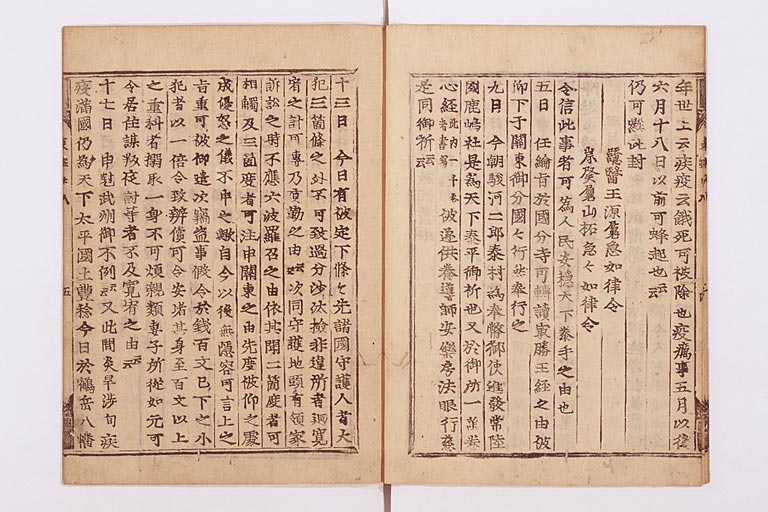 年世上云疾疫云餓死可被除也疫癘事五月以後
六月十八日以前可蜂起也云云
仍可點此封
醫王源 急如律令
山拓急々如律令
令信此事者可為人民安穏天下泰平之由也
五日 任綸旨於國分寺可轉讀㝡勝王經之由被
仰下于關東御分國々行然奉行之
九日 今朝駿河二郎泰村為奉幣御使進發常陸
國鹿嶋社是為天下泰平御祈也又於御所一萬卷
心經此内一千卷者書寫 被遂供養導師安樂房法眼行慈
是同御祈云云
十三日 今日有被定下條々先諸國守護人者大
犯三箇條之外不可致過分沙汰撿非違所者廻寛
宥之計可專乃貢勤之由云云次同守護地頭有領家
訴訟之時不應六波羅召之由依其聞二箇度者可
相觸及三箇度者可注申關東之由先度被仰之處
成優恕之儀不申之歟自今以後無隱容可言上之
旨重可被仰遣次竊盗事假令於錢百文已下之小
犯者以一倍令致辨償可令安堵其身至百文以上
之重科者搦取一身不可煩親類妻子所從如元可
令居住謀叛夜討等者不及寛宥之由云云
十七日 申尅武州御不例云云又此間炎旱渉旬疾
疫滿國仍為天下太平國土豊稔今日於鶴岳八幡